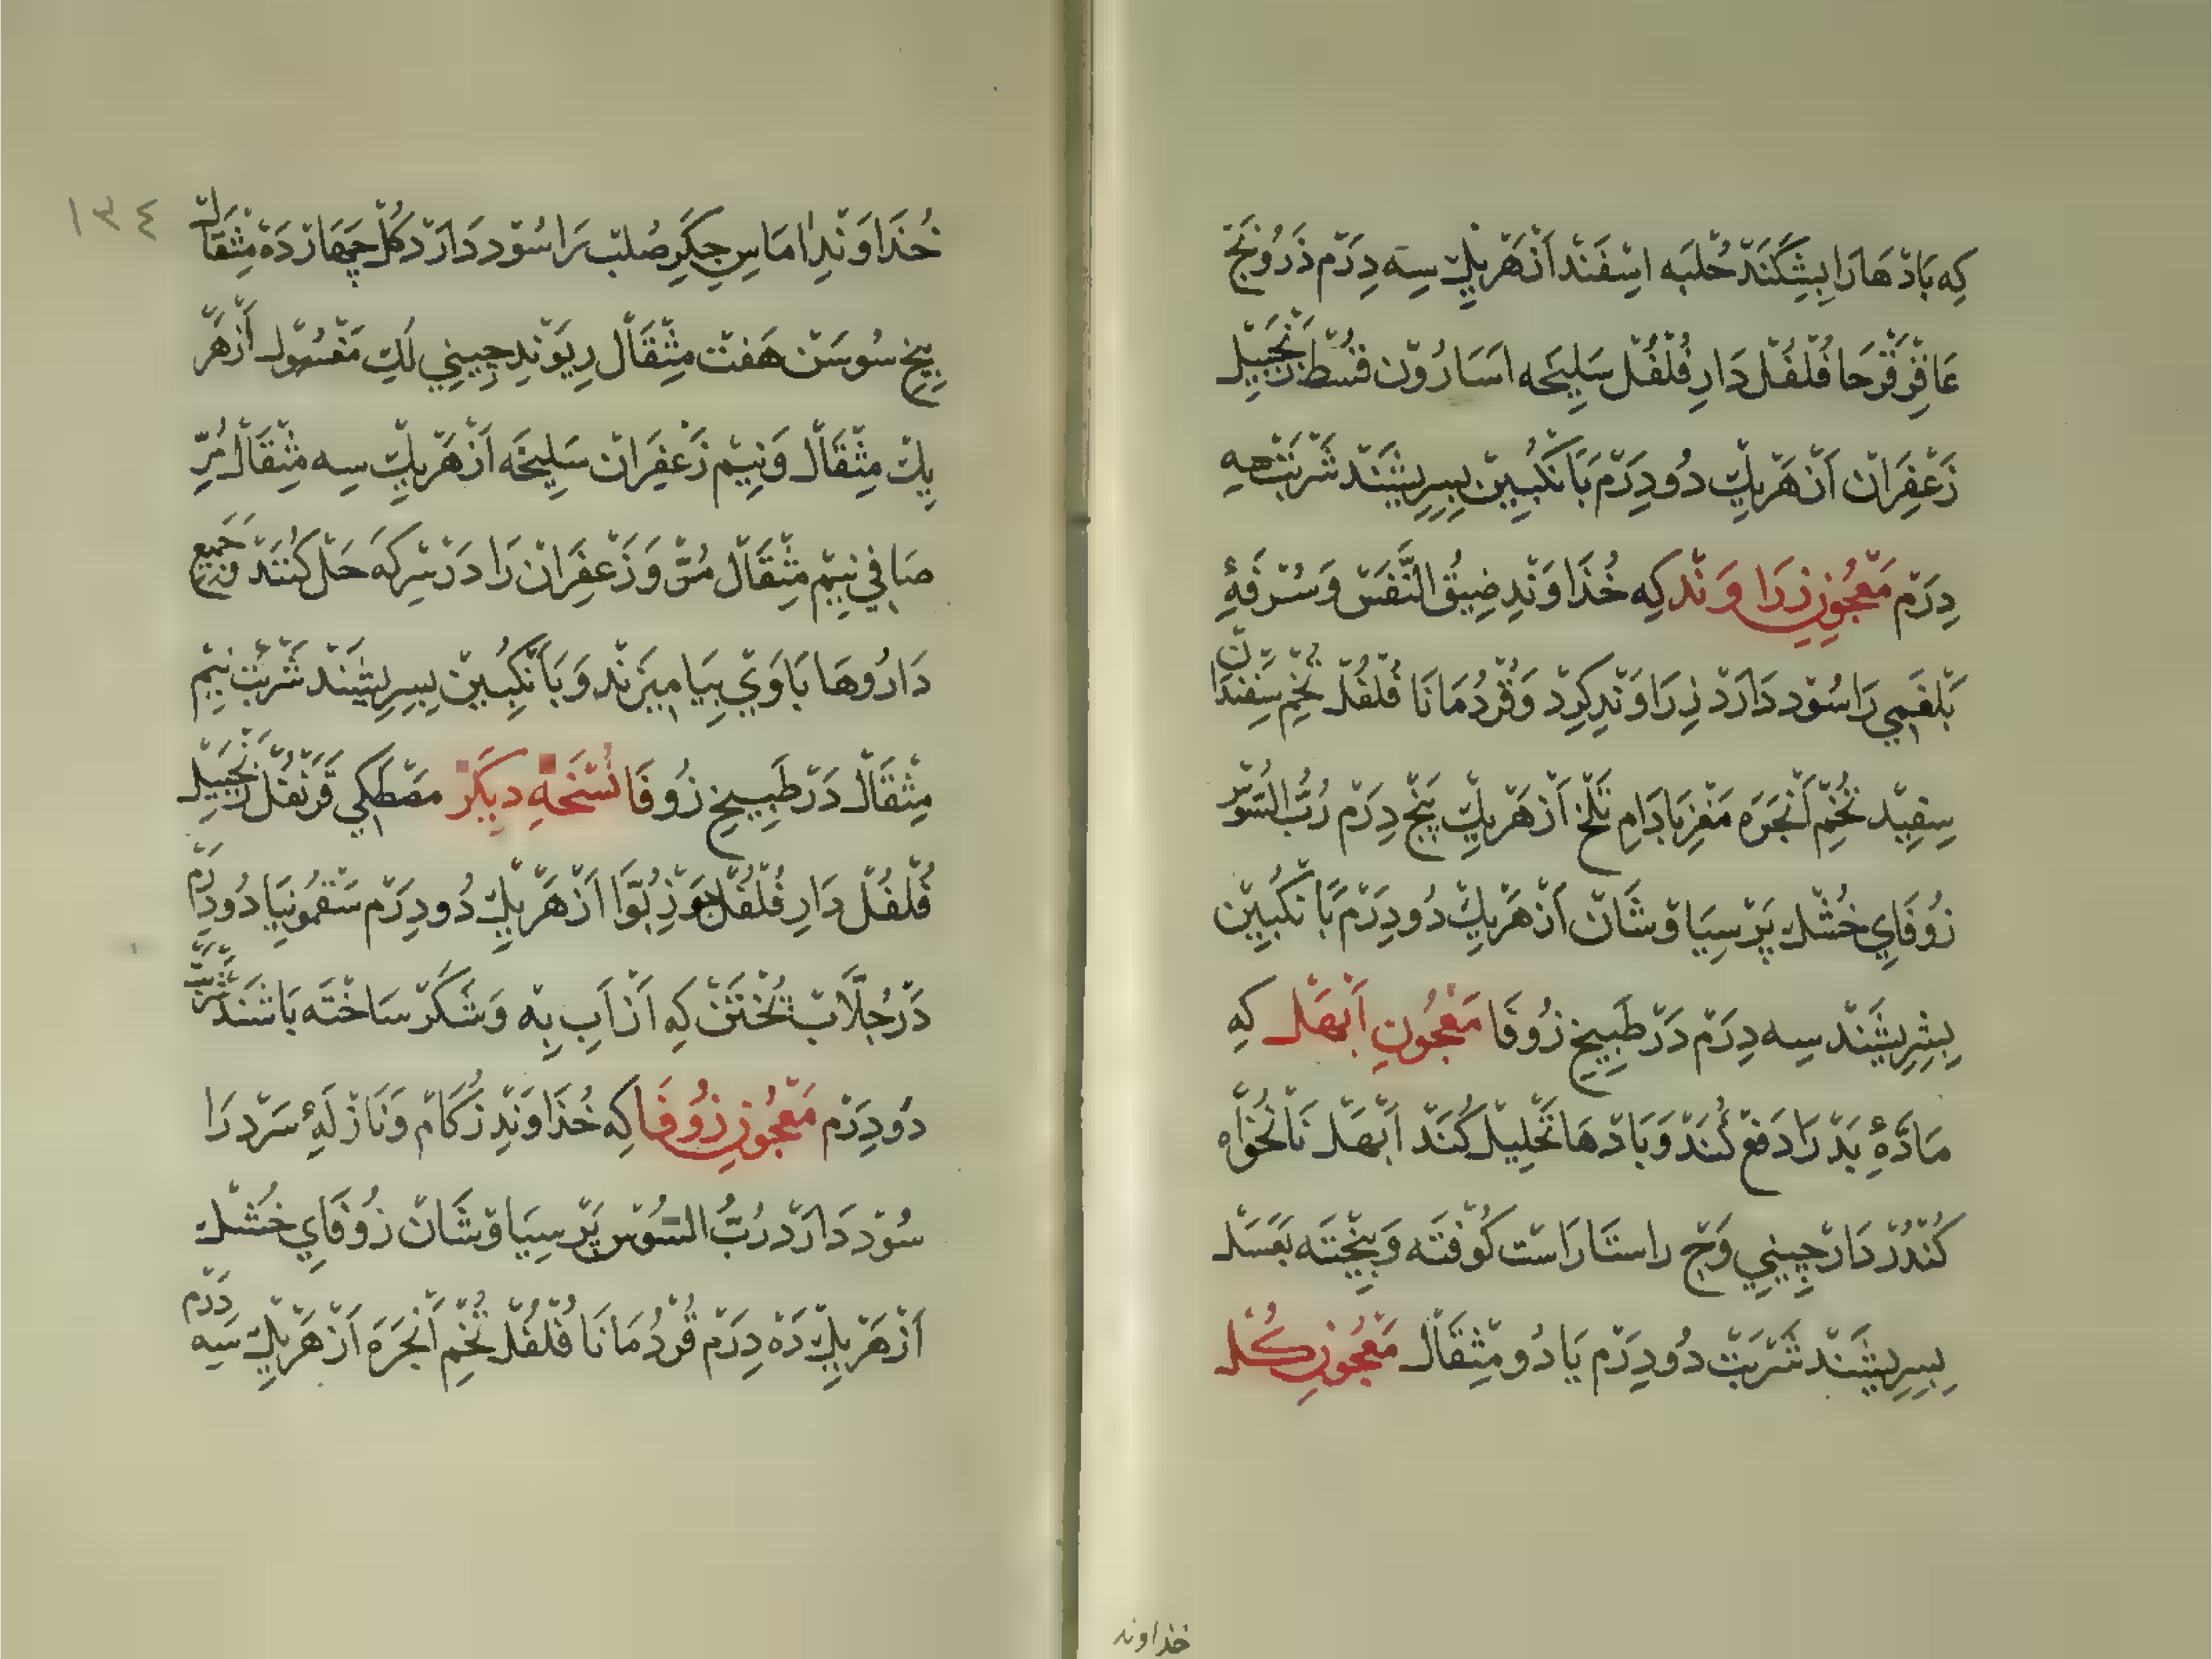 كِه بَادْهَا رَا بِشِكَنَدْ حُلبَه اسْفَنْد اَزْهَرْيِكْ سِه دِرَمْ دَرُونَجْ
عَاقِرْقَرْحَا فُلْفُلْ دَارِفُلْفُلْ سَلِيخَه اَسَارُوْن قُسْط زَنْجَبِيْل
زَعْفَرَانْ اَزْ هَرْيِكْ دُو دِرَمْ بَانْكُبِينْ بِسِرِيشَنْدْ شَرْبَتْ سِه
دِرَمْ مَعْجُونِ زِرَاوَنْد كِه خُذَاوَنْدِ ضِيقُ النَّفَسْ وَسُرْفَهٔ
بَلْغَمِي رَا سُوْد دَارَدْ زِرَاوَنْدِ كِرْد وَقُرْدُمَانَا فُلْفُلْ تُخْمِ سِفَنْدَانْ
سِفِيْد تُخْمِ اَنْجَرَه مَغْزِ بَادَامِ تَلْخ اَزْ هَرْيِكْ پَنْجْ دِرَمْ رُبُّ السُّوْسْ
زُوفَايِ خُشْك پَرْسِيَاوْشَانْ اَزْهَرْيِكْ دُو دِرَمْ بَانْكُبِيْن
بِسِرِيشَنْدْ سِه دِرَمْ دَرْ طَبِيخِ زُوفَا مَعْجُونِ اَبْهَلْ كِه
مَادَّهٔ بَدْ رَا دَفْع كُنَدْ وَبَادْهَا تَحْلِيل كُنَدْ اَبْهَلْ نَانْخُوَاه
كُنْدُرْ دَارْچِينِي وَجْ راستَارَاسْت كُوفْتَه وَبِيْخْتَه بَعَسَلْ
بِسِرِيشَنْدْ شَرْبَتْ دُو دِرَمْ يَا دُو مِثْقَالْ مَعْجُونِ كُلْ
خداوند
١٣٤
خُذَاوَنْدِ اَمَاسِ جِكَرِ صُلبْ رَا سُوْد دَارَدْ كُلْ چَهَارْدَه مِثْقَالْ
بِيخِ سُوسَنْ هَفتْ مِثْقَالْ رِيوَنْدِ چِينِي لَكِ مَغْسُوْل اَزْ هَرْ
يِكْ مِثْقَالْ وَنِيمْ زَعْفَرَانْ سَلِيخَه اَزْ هَرْيِكْ سِه مِثْقَالْ مُرِّ
صَافِي نِيمْ مِثْقَالْ مُرّ وَزَعْفَرَانْ رَا دَرْ سِرْكَه حَلْ كُنَنْدْ وَجَمِيعِ
دَارُوهَا بَا وَيْ بِيَامِيزَنْد وَبَانْكُبِينْ بِسِرِيشَنْدْ شَرْبَتْ نِيمْ
مِثْقَالْ دَرْ طَبِيخِ زُوفَا نُسْخَهٔ دِيكَرْ مَصْطَكِي قَرَنْفُلْ زَنْجَبِيْل
فُلْفُلْ دَارِفُلْفُلْ جَوْزِبُوَّا اَزْ هَرْيِكْ دُو دِرَمْ سَقْمُونِيَا دُو دِرَمْ
دَرْ جُلَّابْ پُخْتَنْ كِه اَزْ اَبِ بِهْ وَشَكَرْ سَاخْتَه بَاشَنْدْ شَرْبَتْ
دُو دِرَمْ مَعْجُونِ زُوفَا كِه خُذَاوَنْدِ زُكَامْ وَنَازْلَهٔ سَرْد رَا
سُوْد دَارَدْ رُبُّ السُّوْس پَرْسِيَاوْشَانْ زُوفَايِ خُشْك
اَزْهَرْيِكْ دَه دِرَمْ قُرْدُمَانَا فُلْفُلْ تُخْمِ اَنْجَرَه اَزْهَرْيِكْ سِه دِرَمْ